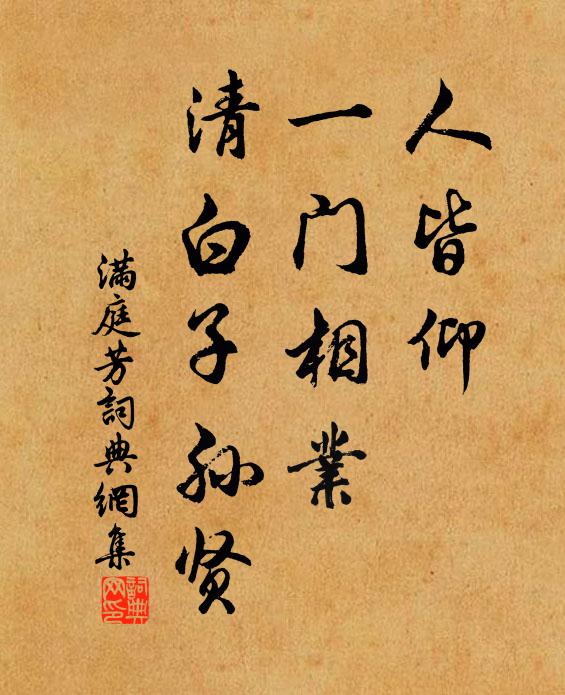 人皆仰
一门相業
清白子孙贤
满庭芳詞典網集
詞典
网印